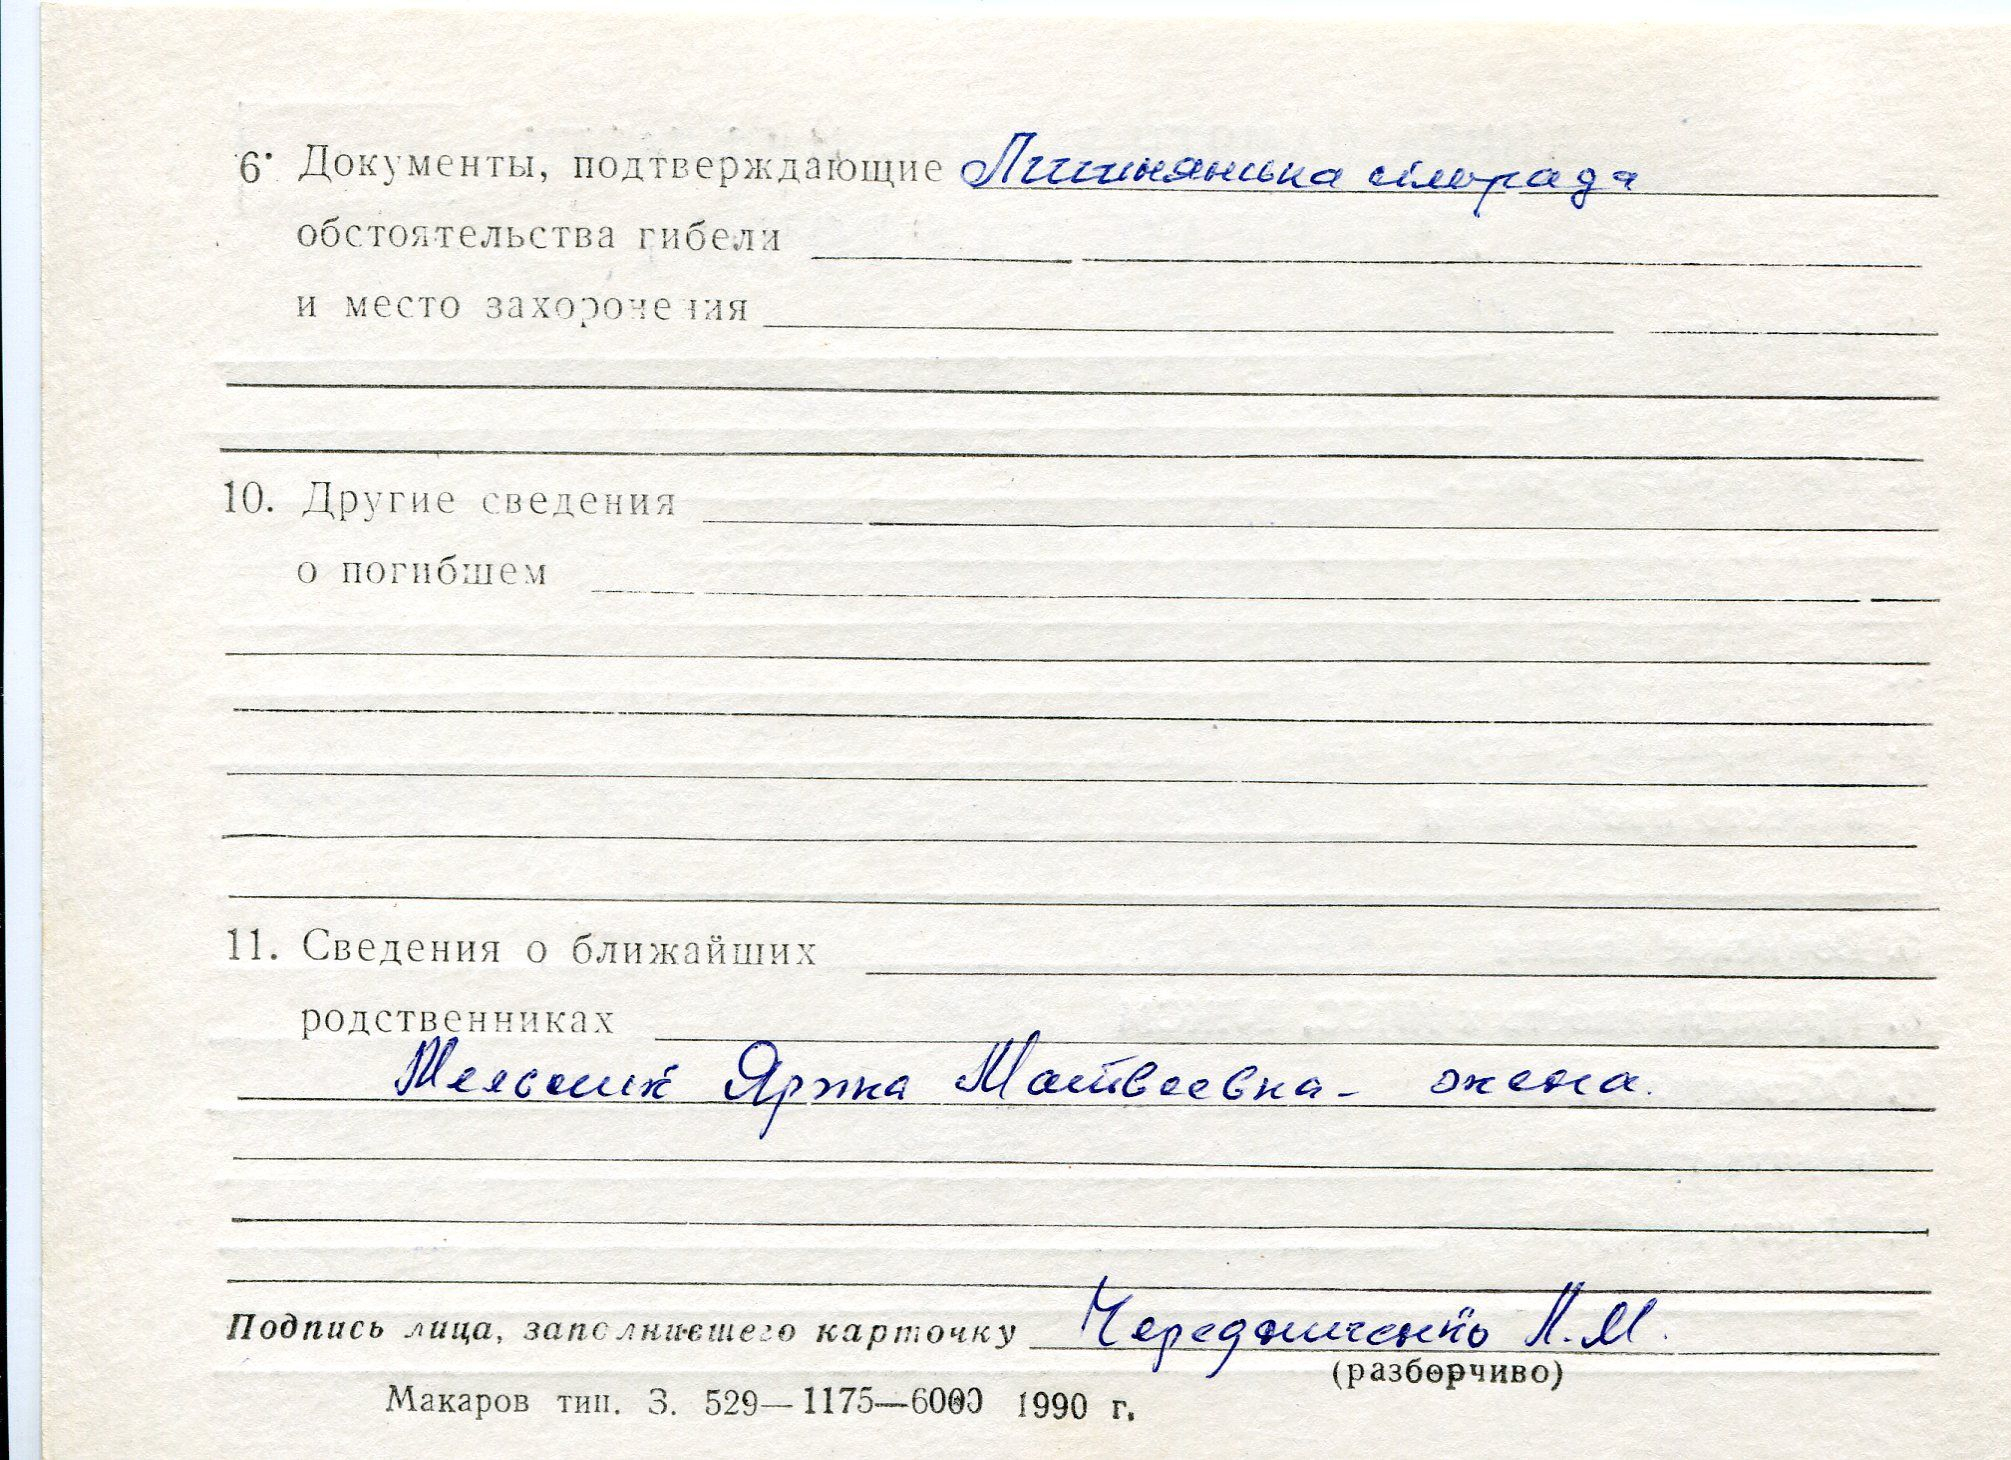 6. Документы, подтверждающие сілрада
обстоятельства гибели
и место захоронения
10. Другие сведения
о погибшем
11. Сведения о ближайших
родственниках
Матвеевна - жена.
Подпись лица, заполнившего карточку Чередниченко Л. М.
(разборчиво)
Макаров тип. З. 529—1175—6000 1990 г.